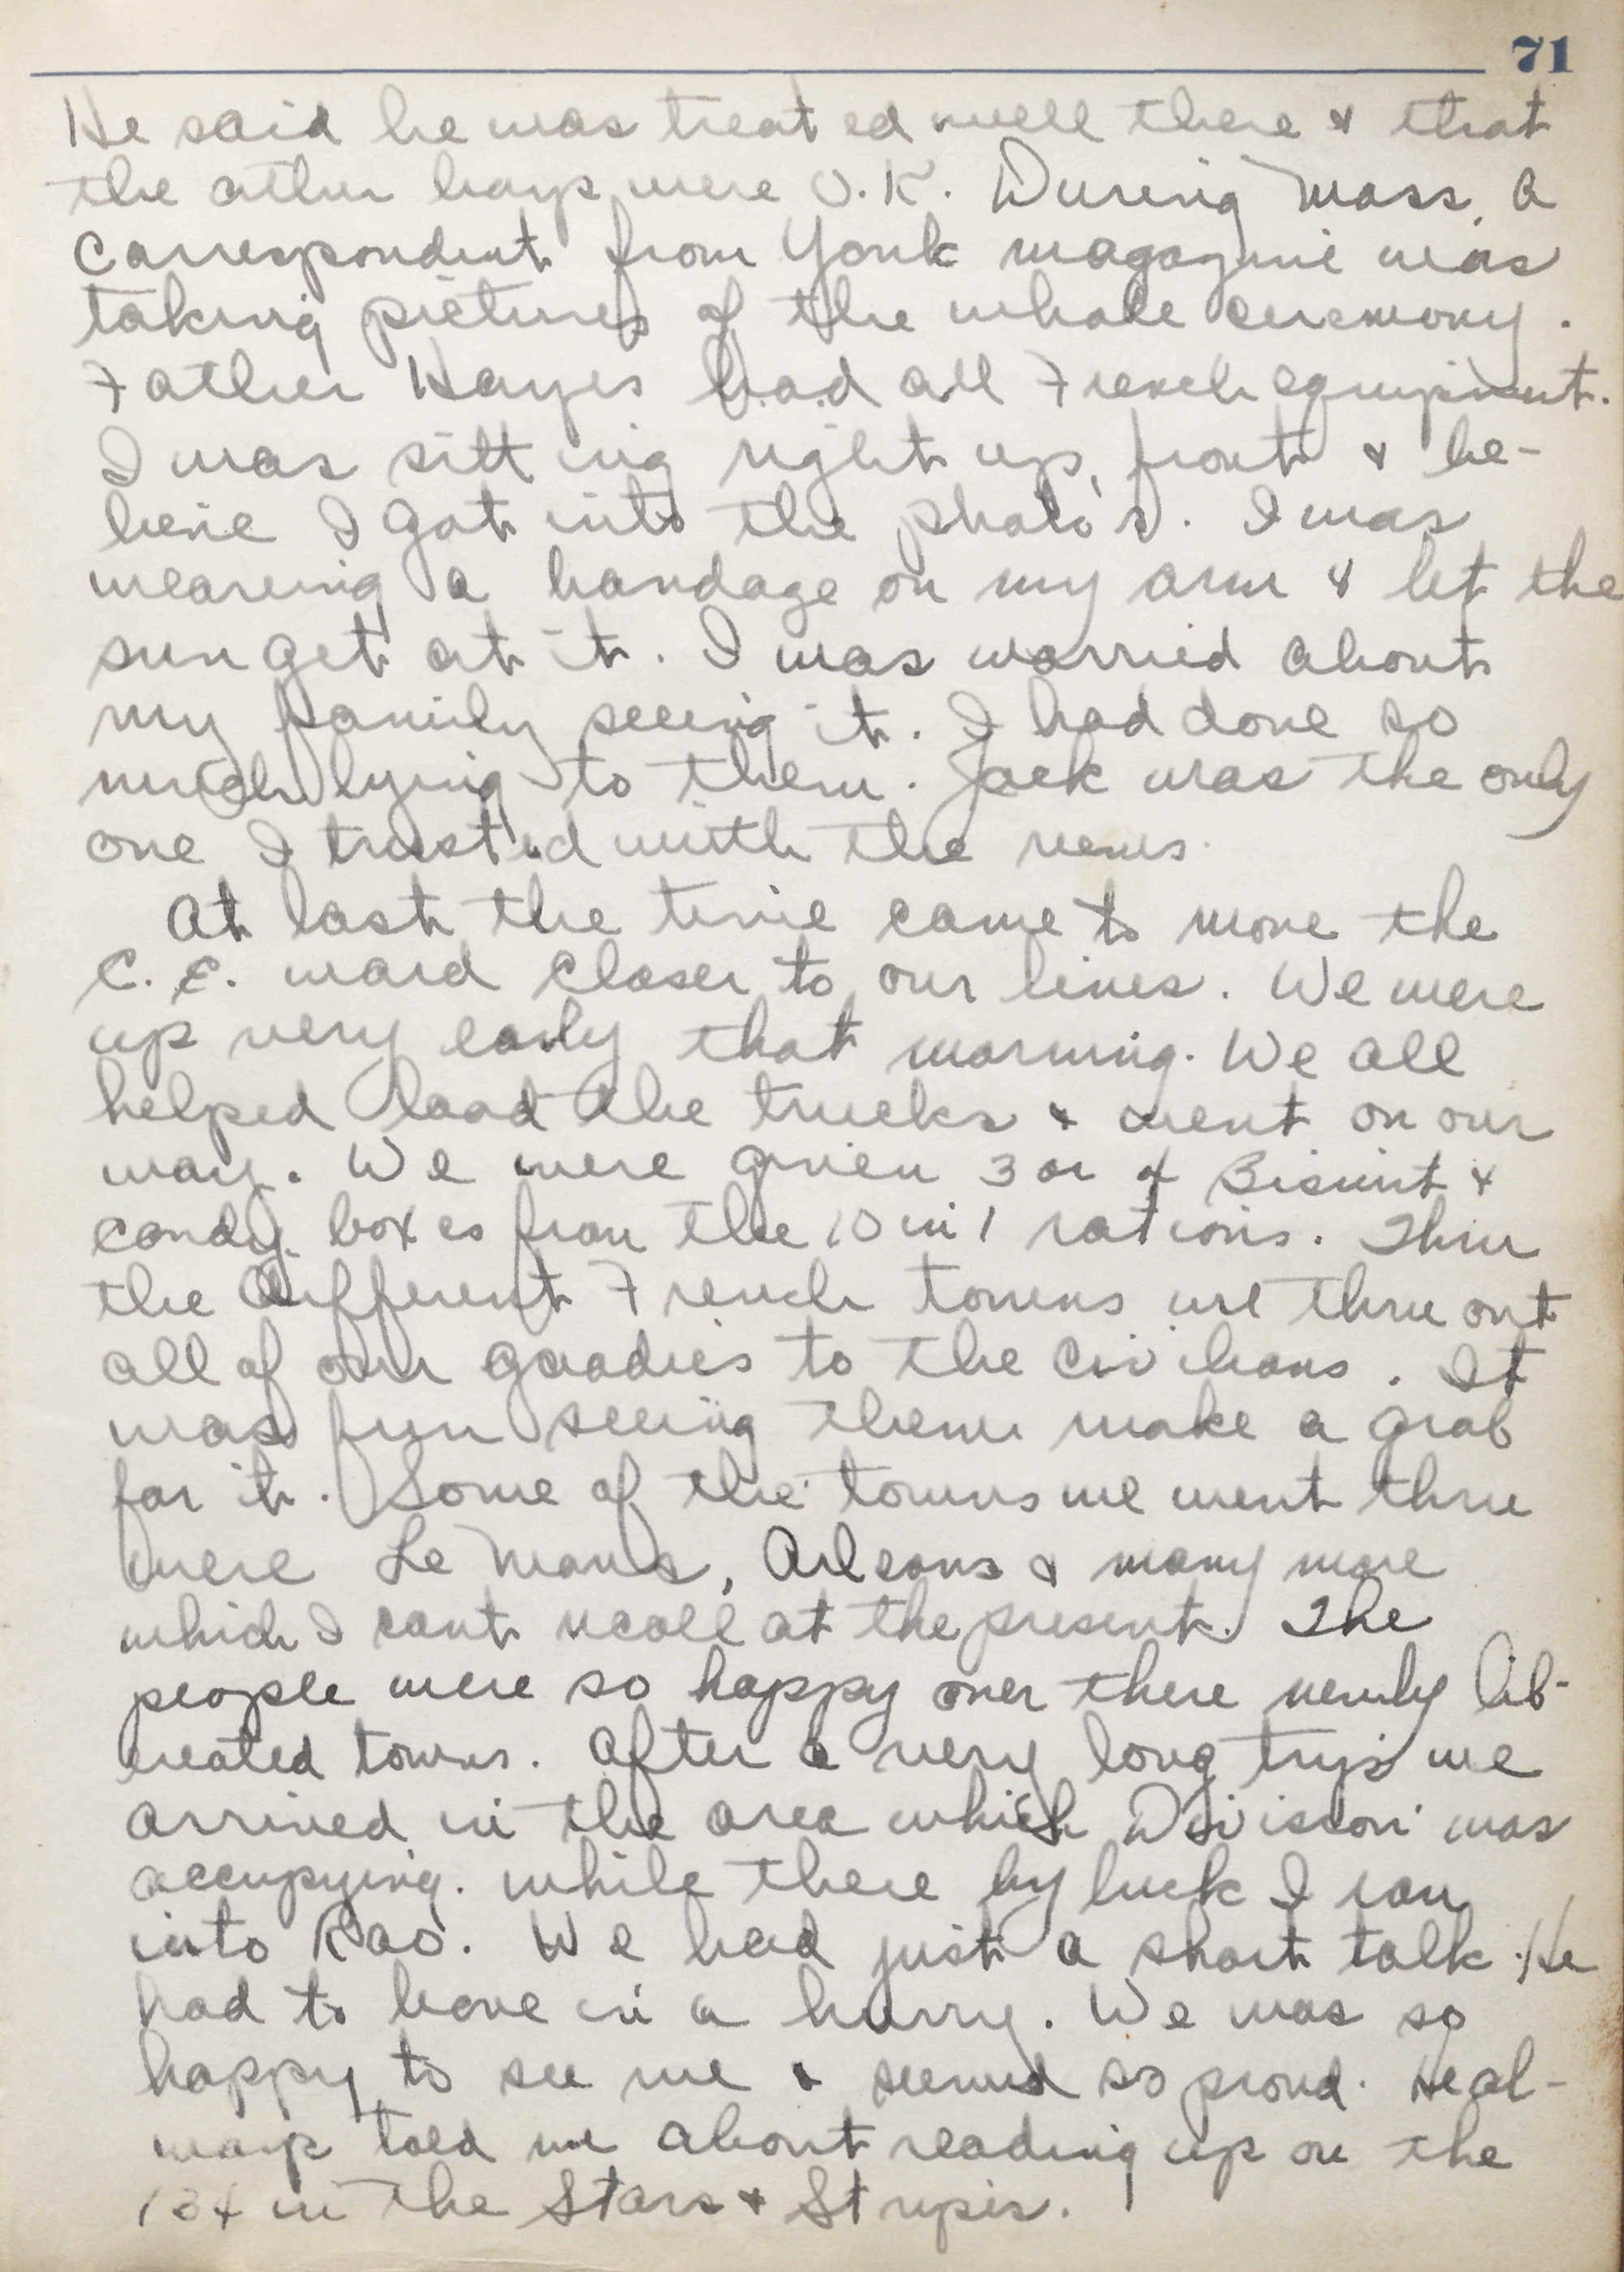 71
He said he was treated well there & that
the other boys were O.K. During Mass, a
Correspondent from Yank magazine was
taking pictures of the whole ceremony.
Father Hayes had all French equipment.
I was sitting right up front & be-
lieve I got into the photo's. I was
wearing a bandage on my arm & let the
sun get at it. I was worried about
my family seeing it. I had done so
much lying to them. Jack was the only
one I trusted with the news.
At last the time came to move the
C.E. ward closer to our lines. We were
up very early that morning. We all
helped load the trucks & went on our
way. We were given 3 or 4 Biscuit &
candy boxes from the 10 in 1 rations. Thru
the different French towns we threw out
all of our goodies to the civilians. It
was fun seeing them make a grab
for it. Some of the towns we went thru
were Le Mans, Orleans & many more
which I cant recall at the present. The
people were so happy over there newly lib-
erated towns. After a very long trip we
arrived in the area which Division was
occupying. While there by luck I ran
into Rao. We had just a short talk. He
had to leave in a hurry. We was so
happy to see me & seemed so proud. He al-
ways told me about reading up on the
134 in the Stars & Stripes.